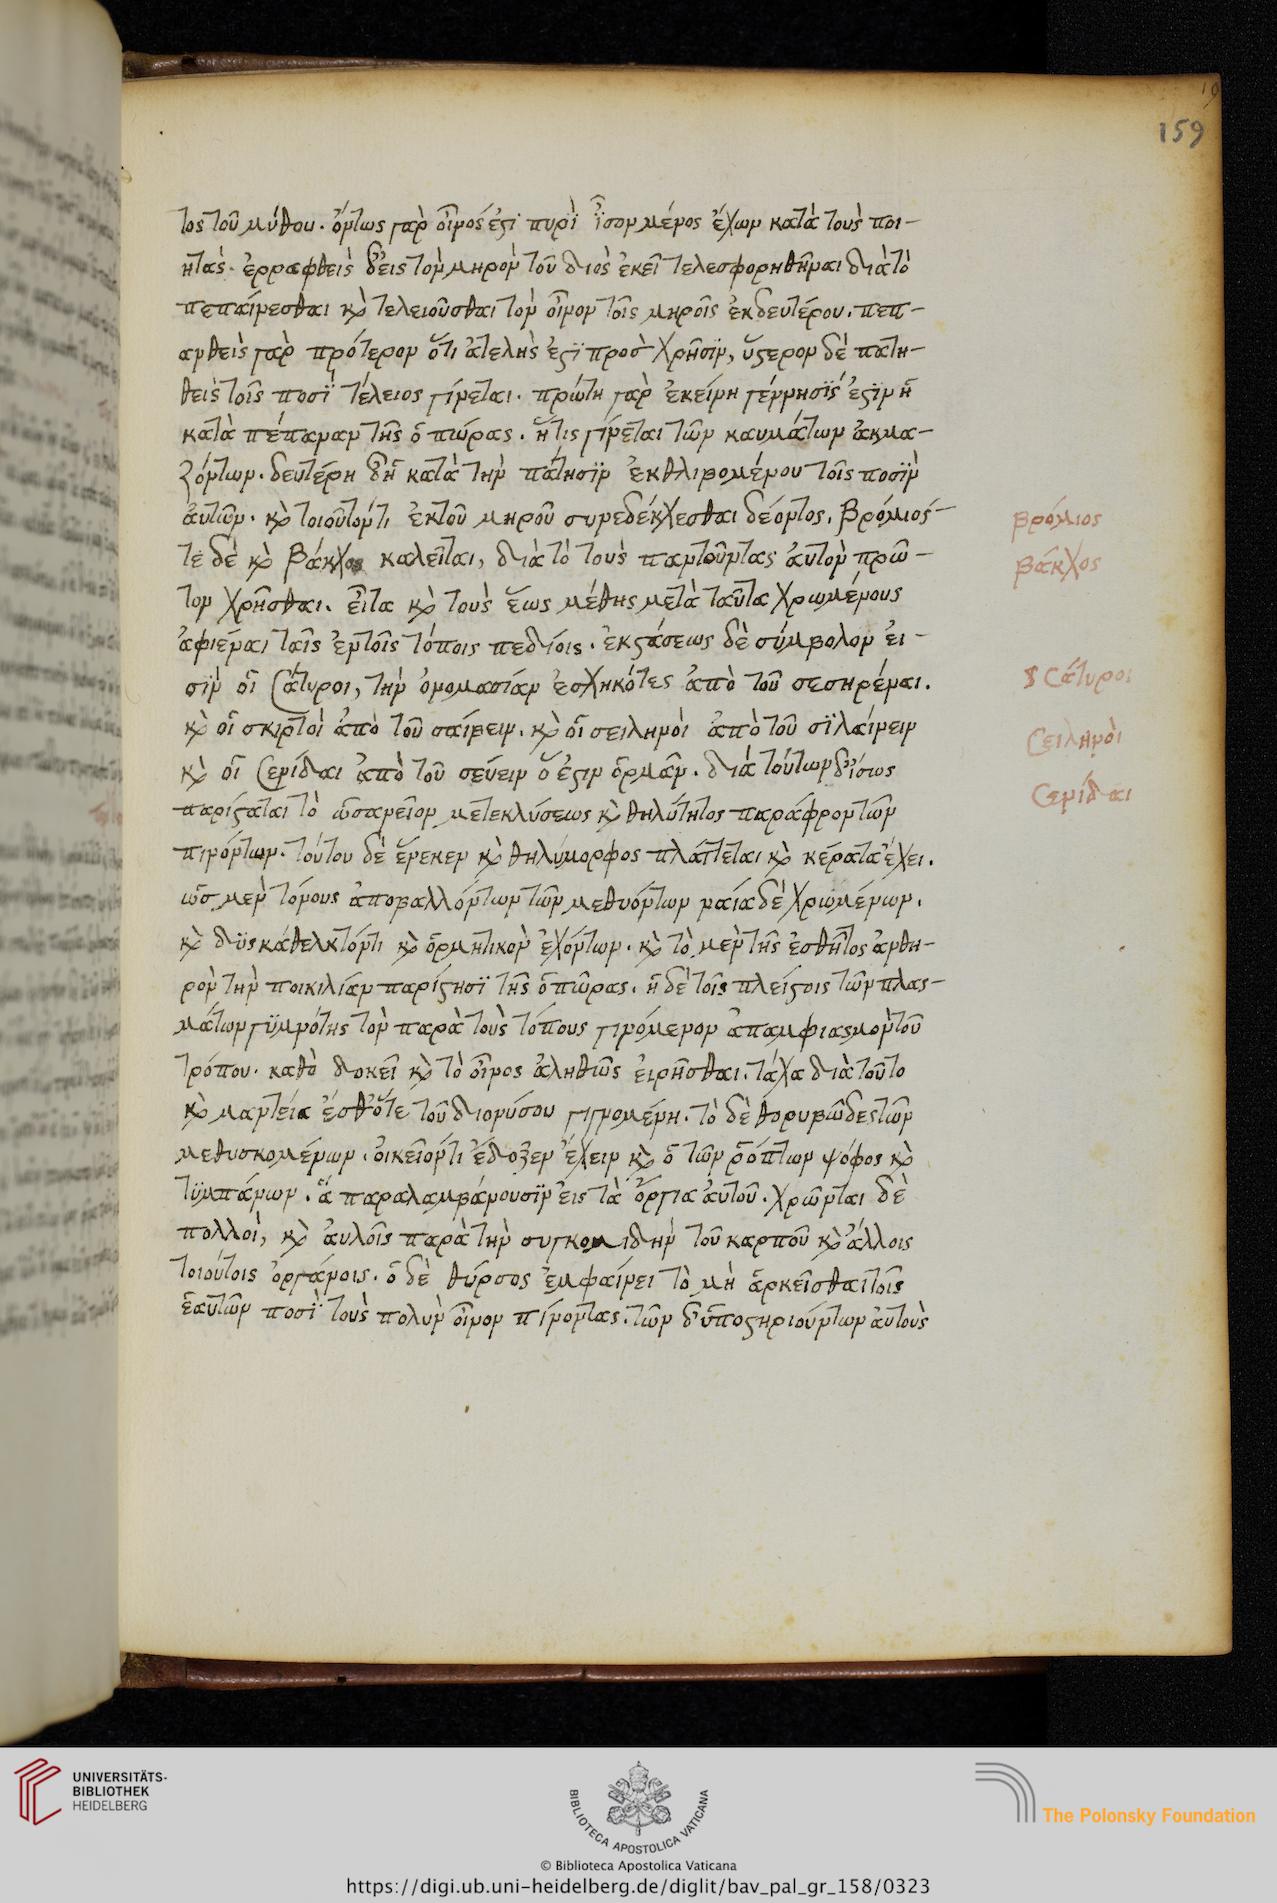 159
τος τοῦ μύθου. ὄντως γὰρ οἶνός ἐστι πυρὶ ἴσον μένος ἔχων κατὰ τοὺς ποι-
ητάς. ἐρραφθεὶς δ' εἰς τὸν μηρὸν τοῦ διὸς ἐκεῖ τελεσφορηθῆναι διὰ τὸ
πεπαίνεσθαι κὴ τελειοῦσθαι τὸν οἶνον τοῖς μηροῖς ἐκ δευτέρου. πεπ-
ανθεὶς γὰρ πρότερον ὅτι ἀτελής ἐστι προσ χρῆσιν, ὕστερον δὲ πατη-
θεὶς τοῖς ποσὶ τέλειος γίνεται. πρώτη γὰρ ἐκείνη γέννησίς ἐστιν ἡ
κατὰ πέπαναν τῆς ὀπώρας. ἥτις γίνεται τῶν καυμάτων ἀκμα-
ζόντων. δευτέρη δ' ἡ κατὰ τὴν πάτησιν ἐκθλιβομένου τοῖς ποσὶν
ἀυτῶν. κὴ τοιοῦτόν τι ἐκ τοῦ μηροῦ συνεδέκχεσθαι δέοντος. βρόμιός-
τε δὲ κὴ βάκχος καλεῖται, διὰ τὸ τοὺς παντοῦντας ἀυτὸν πρῶ-
τον χρῆσθαι. εἶτα κὴ τοὺς ἕως μέθης μετὰ ταῦτα χρωμένους
ἀφιέναι ταῖς ἐν τοῖς τόποις πεδίοις. ἐκστάσεως δὲ σύμβολον εἰ-
σὶν οἱ Σάτυροι, τὴν ὀνομασίαν ἐσχηκότες ἀπὸ τοῦ σεσηρέναι.
κὴ οἱ σκιρτοὶ ἀπὸ τοῦ σαίρειν. κὴ οἱ σειληνοὶ ἀπὸ τοῦ σιλαίνειν
κὴ οἱ Σενίδαι ἀπὸ τοῦ σεύειν ὅ ἐστιν ὁρμᾶν. διὰ τούτων δ' ἴσως
παρίσταται τὸ ὡσανεῖον μετεκλύσεως κὴ θηλύτητος παράφρον τῶν
πινόντων. τούτου δὲ ἕνεκεν κὴ θηλύμορφος πλάττεται κὴ κέρατα ἔχει.
ὡς μὲν τόνους ἀποβαλλόντων τῶν μεθυόντων ναία δὲ χρωμένων.
κὴ δυσκάθελκτόν τι κὴ ὁρμητικὸν ἐχόντων. κὴ τὸ μὲν τῆς ἐσθῆτος ἀνθη-
ρὸν τὴν ποικιλίαν παρίστησι τῆς ὀπώρας. ἡ δὲ τοῖς πλείστοις τῶν πλασ-
μάτων γυμνότης τὸν παρὰ τοὺς τόπους γινόμενον ἀπαμφιασμὸν τοῦ
τρόπου. καθὸ δοκεῖ κὴ τὸ οἶνος ἀληθῶς εἰρῆσθαι. τάχα διὰ τοῦτο
κὴ μαντεία ἐσθ' ὅτε τοῦ διονύσου γιγνομένη. τὸ δὲ θορυβῶδες τῶν
μεθυσκομένων. οἰκεῖόν τι ἔδοξεν ἔχειν κὴ ὁ τῶν ῥόπτων ψόφος κὴ
τυμπάνων. ἃ παραλαμβάνουσιν εἰς τὰ ὄργια ἀυτοῦ. χρῶνται δὲ
πολλοὶ, κὴ ἀυλοῖς παρὰ τὴν συγκομιδὴν τοῦ καρποῦ κὴ ἄλλοις
τοιούτοις ὀργάνοις. ὁ δὲ θύρσος ἐμφαίνει τὸ μὴ ἀρκεῖσθαι τοῖς
ἑαυτῶν ποσὶ τοὺς πολὺν οἶνον πίνοντας. τῶν δ' ὑποστηριούντων ἀυτοὺς
βρόμιος
βάκχος
Σάτυροι
Σειληνοὶ
Σενίδαι
UNIVERSITÄTS-
BIBLIOTHEK
HEIDELBERG
BIBLIOTECA APOSTOLICA VATICANA
The Polonsky Foundation
© Biblioteca Apostolica Vaticana
https://digi.ub.uni-heidelberg.de/diglit/bav_pal_gr_158/0323